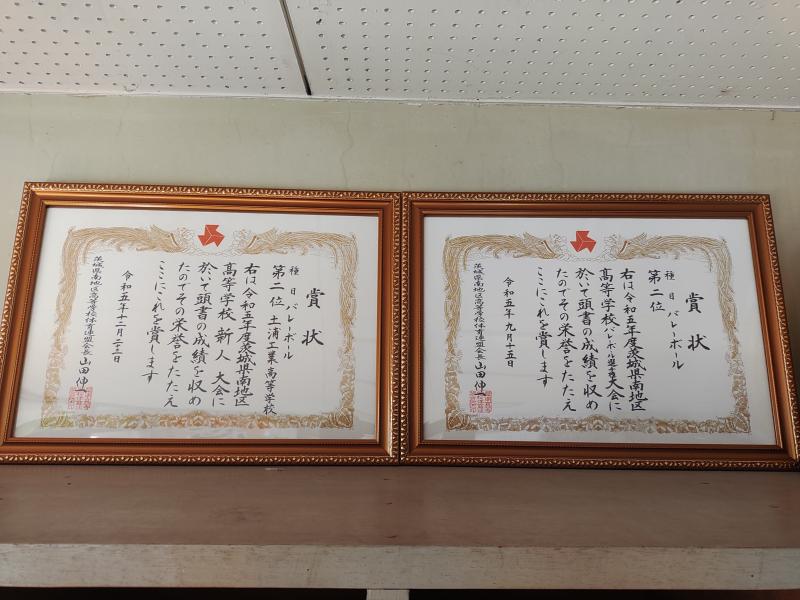 賞状
種目 バレーボール
第二位 土浦工業高等学校
右は令和五年度茨城県南地区
高等学校 新人 大会に
於いて頭書の成績を収め
たのでその栄誉をたたえ
ここにこれを賞します
令和五年十二月二十三日
茨城県南地区高等学校体育連盟会長 山田伸一
賞状
種目 バレーボール
第二位
右は令和五年度茨城県南地区
高等学校バレーボール選手権大会に
於いて頭書の成績を収め
たのでその栄誉をたたえ
ここにこれを賞します
令和五年九月十五日
茨城県南地区高等学校体育連盟会長 山田伸一